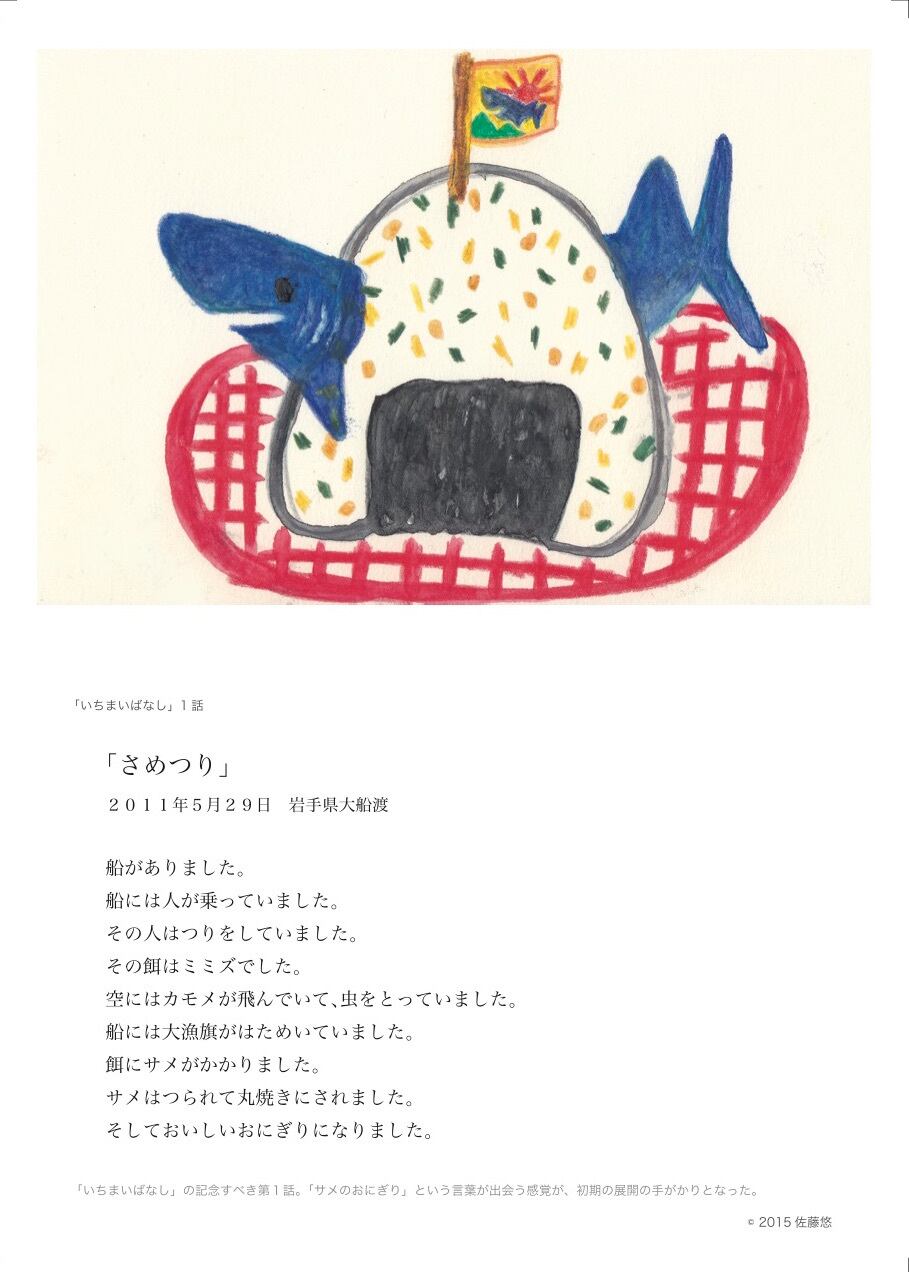 「いちまいばなし」1 話
「さめつり」
２０１１年５月２９日　岩手県大船渡
船がありました。
船には人が乗っていました。
その人はつりをしていました。
その餌はミミズでした。
空にはカモメが飛んでいて、虫をとっていました。
船には大漁旗がはためいていました。
餌にサメがかかりました。
サメはつられて丸焼きにされました。
そしておいしいおにぎりになりました。
「いちまいばなし」の記念すべき第１話。「サメのおにぎり」という言葉が出会う感覚が、初期の展開の手がかりとなった。
© 2015 佐藤悠